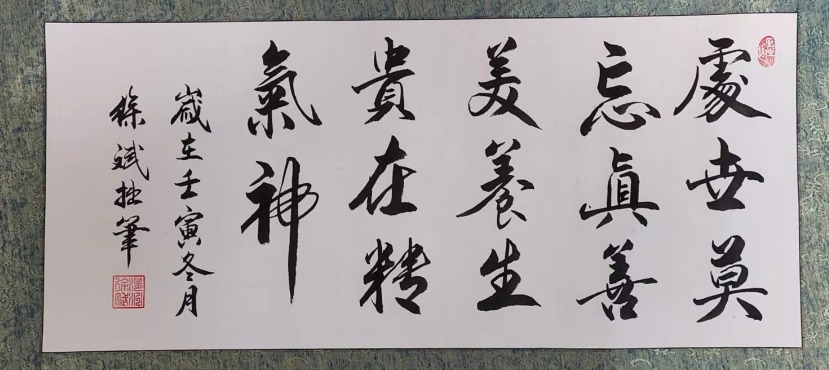 處世莫
忘真善
美養生
貴在精
氣神
歲在壬寅冬月
徐斌拙筆